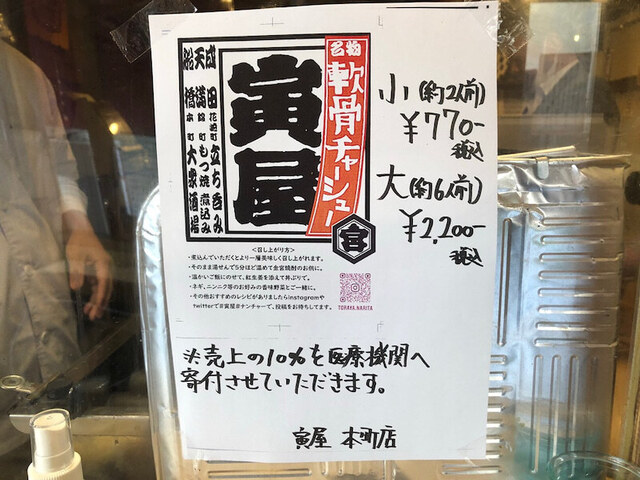 名物
軟骨チャーシュー
寅屋
成田 花崎町 立ち呑み
天満 錦町 もつ焼 煮込み
船橋 本町 大衆酒場
<召し上がり方>
・煮込んでいただくとより一層美味しく召し上がれます。
・そのまま湯せんで5分ほど温めて金宮焼酎のお供に。
・温かいご飯にのせて、紅生姜を添えて丼ぶりで。
・ネギ、ニンニク等のお好みの香味野菜とご一緒に。
・その他おすすめのレシピがありましたらinstagramや
twitterで#寅屋#ナンチャーで、投稿をお待ちしてます。
TORAYA.NARITA
小(約2人前)
¥770-
税込
大(約6人前)
¥2,200-
税込
※売上の10%を医療機関へ
寄付させていただきます。
寅屋 本町店